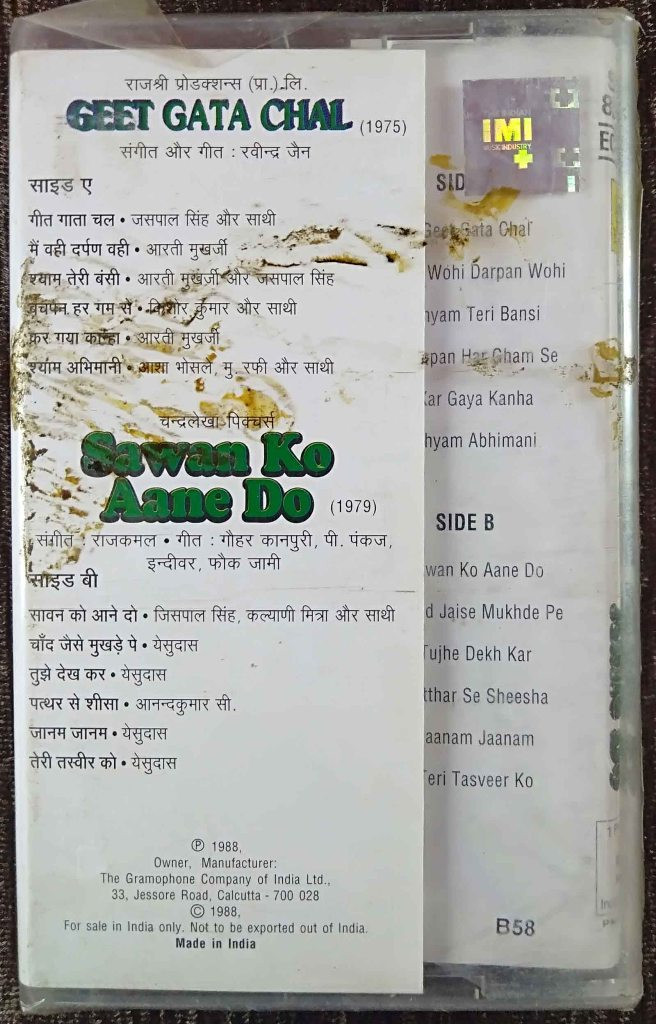 राजश्री प्रोडक्शन्स (प्रा.) लि.
GEET GATA CHAL (1975)
संगीत और गीत : रवीन्द्र जैन
साइड ए
गीत गाता चल • जसपाल सिंह और साथी
मैं वही दर्पण वही • आरती मुखर्जी
श्याम तेरी बंसी • आरती मुखर्जी और जसपाल सिंह
बचपन हर गम से • किशोर कुमार और साथी
कर गया कान्हा • आरती मुखर्जी
श्याम अभिमानी • आशा भोसले, मु. रफी और साथी
चन्द्रलेखा पिक्चर्स
Sawan Ko
Aane Do (1979)
संगीत : राजकमल • गीत : गौहर कानपुरी, पी. पंकज,
इन्दीवर, फौक जामी
साइड बी
सावन को आने दो • जिसपाल सिंह, कल्याणी मित्रा और साथी
चाँद जैसे मुखड़े पे • येसुदास
तुझे देख कर • येसुदास
पत्थर से शीसा • आनन्दकुमार सी.
जानम जानम • येसुदास
तेरी तस्वीर को • येसुदास
℗ 1988,
Owner, Manufacturer:
The Gramophone Company of India Ltd.,
33, Jessore Road, Calcutta - 700 028
© 1988,
For sale in India only. Not to be exported out of India.
Made in India
IMI
MUSIC INDUSTRY
SID
Geet Gata Chal
Wohi Darpan Wohi
hyam Teri Bansi
pan Har Gham Se
Kar Gaya Kanha
hyam Abhimani
SIDE B
wan Ko Aane Do
d Jaise Mukhde Pe
Tujhe Dekh Kar
tthar Se Sheesha
aanam Jaanam
Teri Tasveer Ko
B58